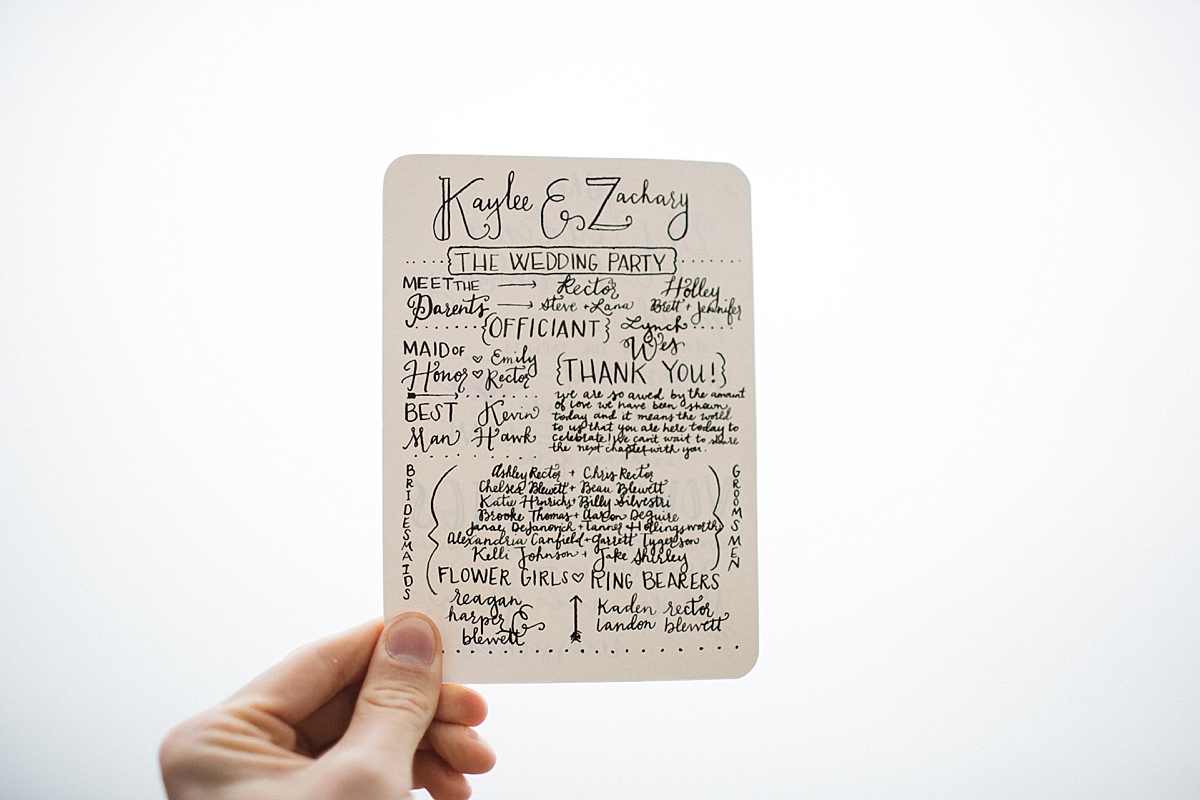 Kaylee & Zachary
THE WEDDING PARTY
MEET THE Parents
Rector
Steve + Lana
Holley
Brett + Jennifer
{OFFICIANT}
Lynch
Wes
MAID OF Honor
Emily
Rector
BEST Man
Kevin
Hawk
{THANK YOU!}
we are so awed by the amount
of love we have been shown
today and it means the world
to us that you are here today to
celebrate! We can't wait to share
the next chapter with you.
BRIDESMAIDS
Ashley Rector + Chris Rector
Chelsea Blewett + Beau Blewett
Katie Hinrichs + Billy Silvestri
Brooke Thomas + Aaron DeGuire
Janae DeJanovich + Tanner Hollingsworth
Alexandria Canfield + Garrett Tygerson
Kelli Johnson + Jake Shirley
GROOMSMEN
FLOWER GIRLS ♡ RING BEARERS
reagan
harper &
blewett
Kaden rector
landon blewett